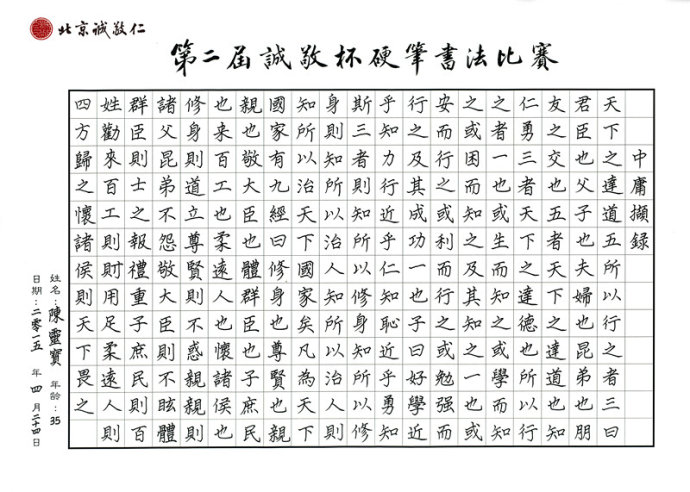 北京誠敬仁
第二屆誠敬杯硬筆書法比賽
中庸擷錄
天下之達道五所以行之者三曰
君臣也父子也夫婦也昆弟也朋
友之交也五者天下之達道也知
仁勇三者天下之達德也所以行
之者一也或生而知之或學而知
之或困而知之及其知之一也或
安而行之或利而行之或勉强而
行之及其成功一也子曰好學近
乎知力行近乎仁知恥近乎勇知
斯三者則知所以修身知所以修
身則知所以治人知所以治人則
知所以治天下國家矣凡為天下
國家有九經曰修身也尊賢也親
親也敬大臣也體群臣也子庶民
也來百工也柔遠人也懷諸侯也
修身則道立尊賢則不惑親親則
諸父昆弟不怨敬大臣則不眩體
群臣則士之報禮重子庶民則百
姓勸來百工則財用足柔遠人則
四方歸之懷諸侯則天下畏之
姓名：陳靈寶 年齡：35
日期：二零一五 年 四 月 二十四 日